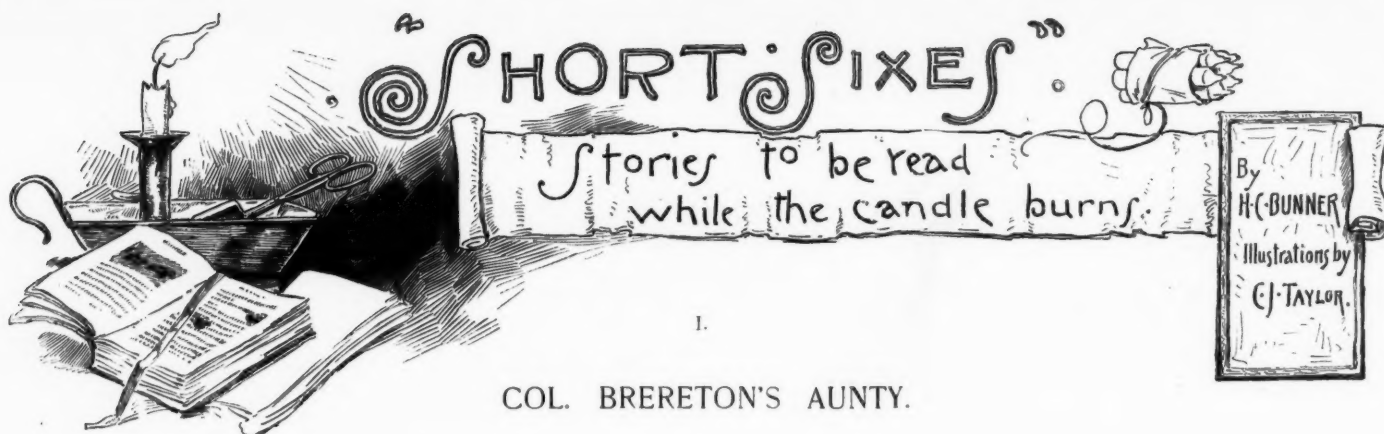 "SHORT SIXES"
Stories to be read
while the candle burns.
By
H.C. BUNNER
Illustrations by
C.J. TAYLOR.
I.
COL. BRERETON'S AUNTY.